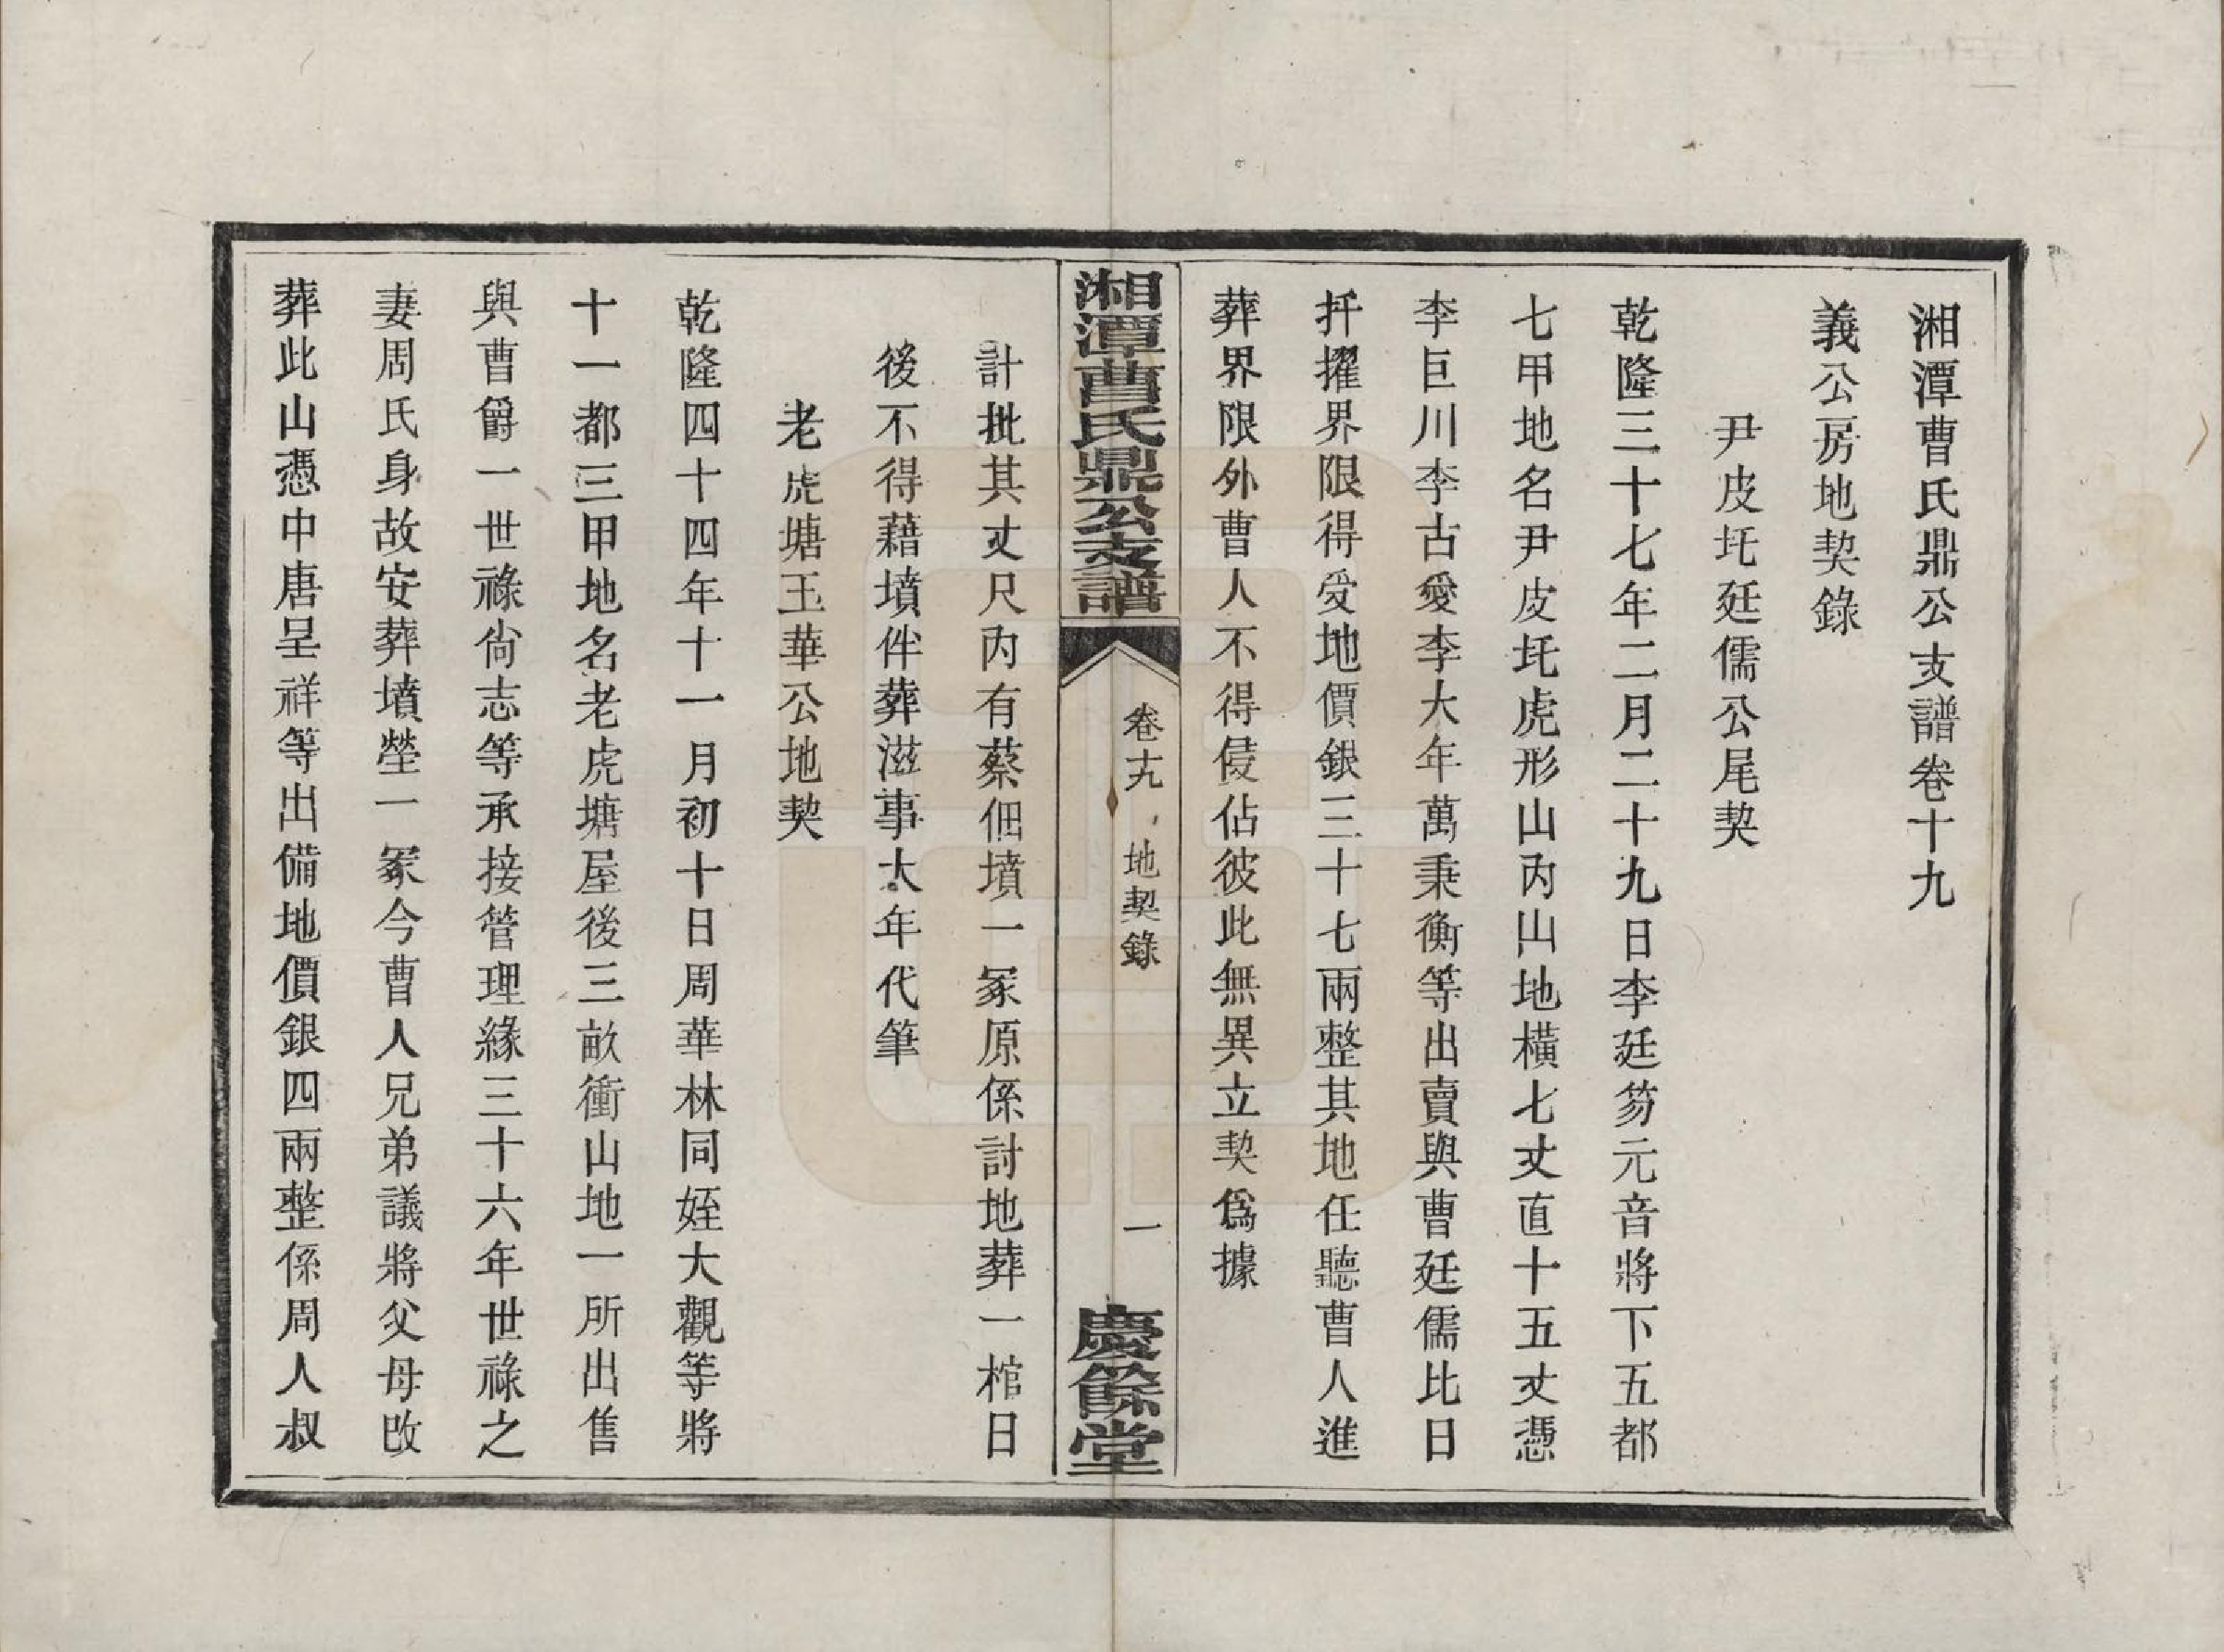 湘潭曹氏鼎公支譜卷十九
義公房地契錄
尹皮圫廷儒公尾契
乾隆三十七年二月二十九日李廷笏元音將下五都
七甲地名尹皮圫虎形山內山地橫七丈直十五丈憑
李巨川李古愛李大年萬秉衡等出賣與曹廷儒比日
扦擢界限得受地價銀三十七兩整其地任聽曹人進
葬界限外曹人不得侵佔彼此無異立契爲據
湘潭曹氏鼎公支譜
卷十九
地契錄
一
慶餘堂
計批其丈尺內有蔡佃墳一冢原係討地葬一棺日
後不得藉墳伴葬滋事大年代筆
老虎塘玉華公地契
乾隆四十四年十一月初十日周華林同姪大觀等將
十一都三甲地名老虎塘屋後三畝衝山地一所出售
與曹爵一世祿尙志等承接管理緣三十六年世祿之
妻周氏身故安葬墳塋一冢今曹人兄弟議將父母改
葬此山憑中唐呈祥等出備地價銀四兩整係周人叔